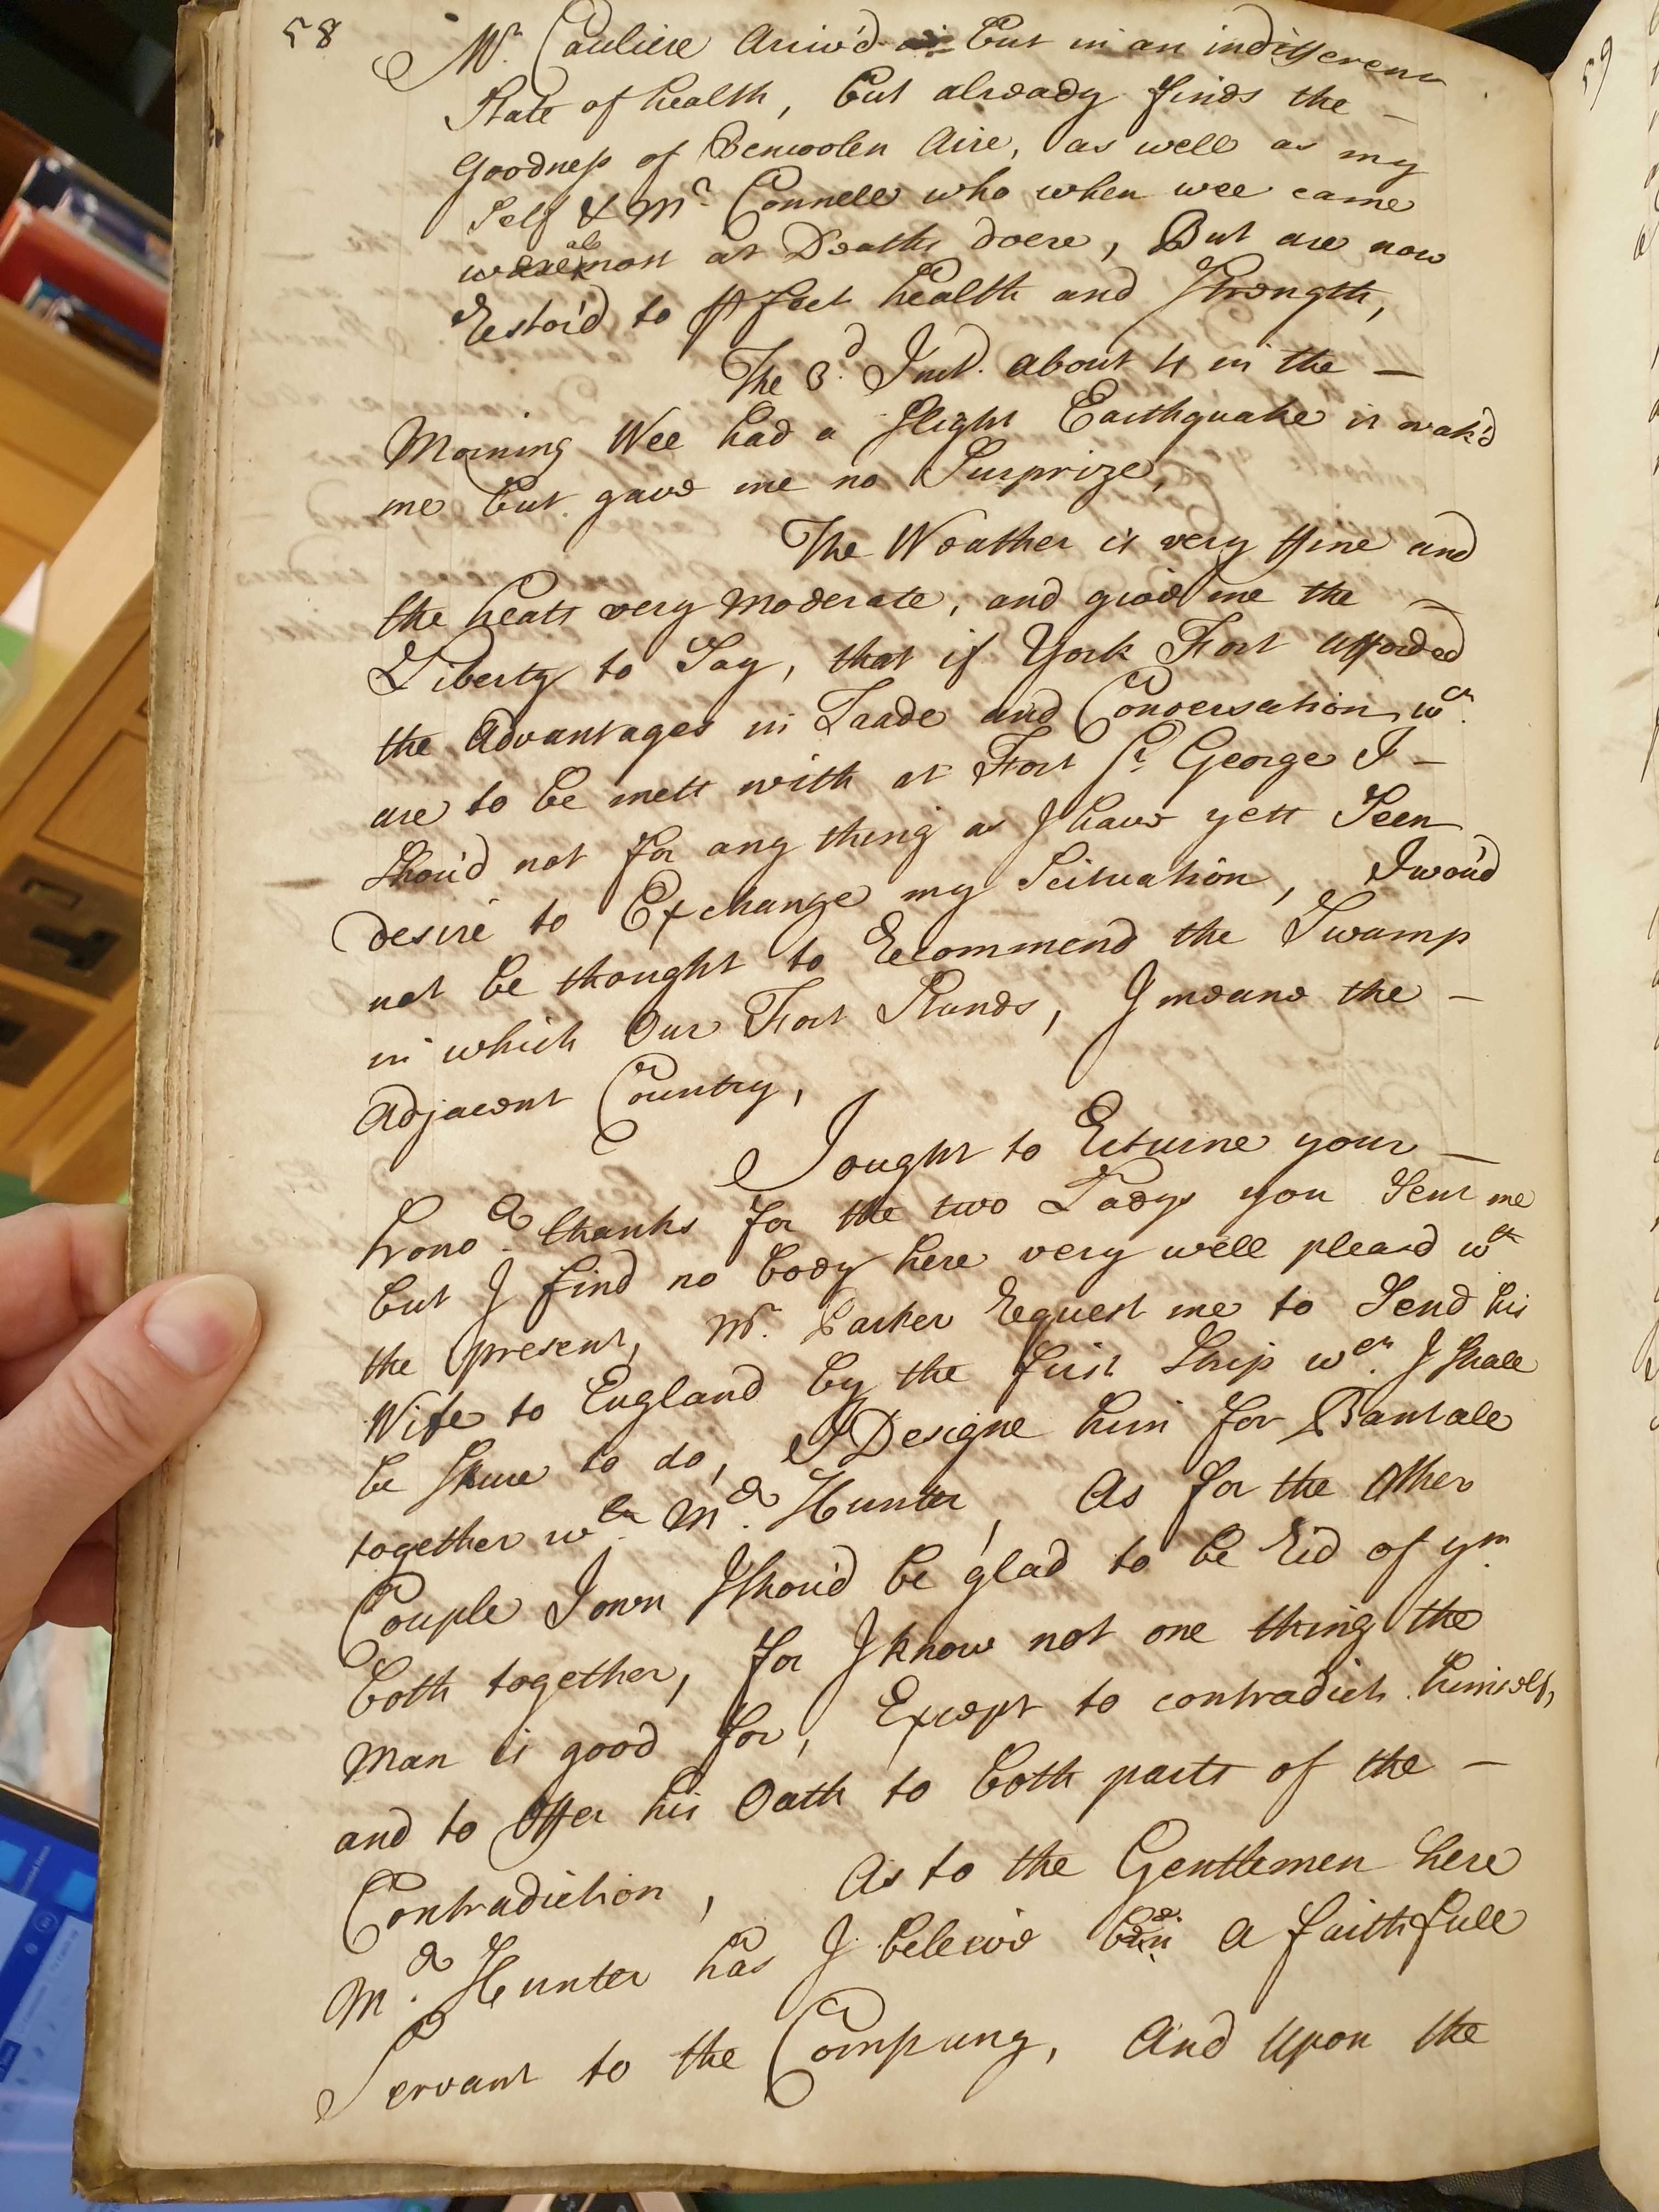 58
Mr. Cauliere Arriv'd but in an indifferent
State of health, but already finds the
Goodness of Bencoolen Aire, as well as my
Self & Mr. Connell who when wee came
were almost at Deaths doere, But are now
Restor'd to pfect health and Strength,
The 3d. Inst. about 4 in the
Morning Wee had a Slight Earthquake it wak'd
me but gave me no Surprize,
The Weather is very ffine and
the heats very moderate, and give me the
Liberty to Say, that if York Fort afforded
the Advantages in Trade and Conversation wch.
are to be mett with at Fort St. George I
Shou'd not for any thing as I have yett Seen
desire to Exchange my Scituation, I wou'd
not be thought to Recommend the Swamp
in which Our Fort Stands, I meane the
Adjacent Country,
I ought to Returne your
hono.r thanks for the two Ladys you Sent me
but I find no body here very well pleas'd wth
the present, Mr. Parker Request me to Send his
Wife to England by the first Ship wch. I Shall
be Shure to do, I Designe him for Bantall
together wth. Mr. Hunter, As for the Other
Couple I own I Shou'd be glad to be Rid of ym
both together, for I know not one thing the
Man is good for, Except to contradict himself,
and to Offer his Oath to both parts of the
Contradiction, As to the Gentlemen here
Mr. Hunter has I beleive been a faithfull
Servant to the Company, And Upon the
59